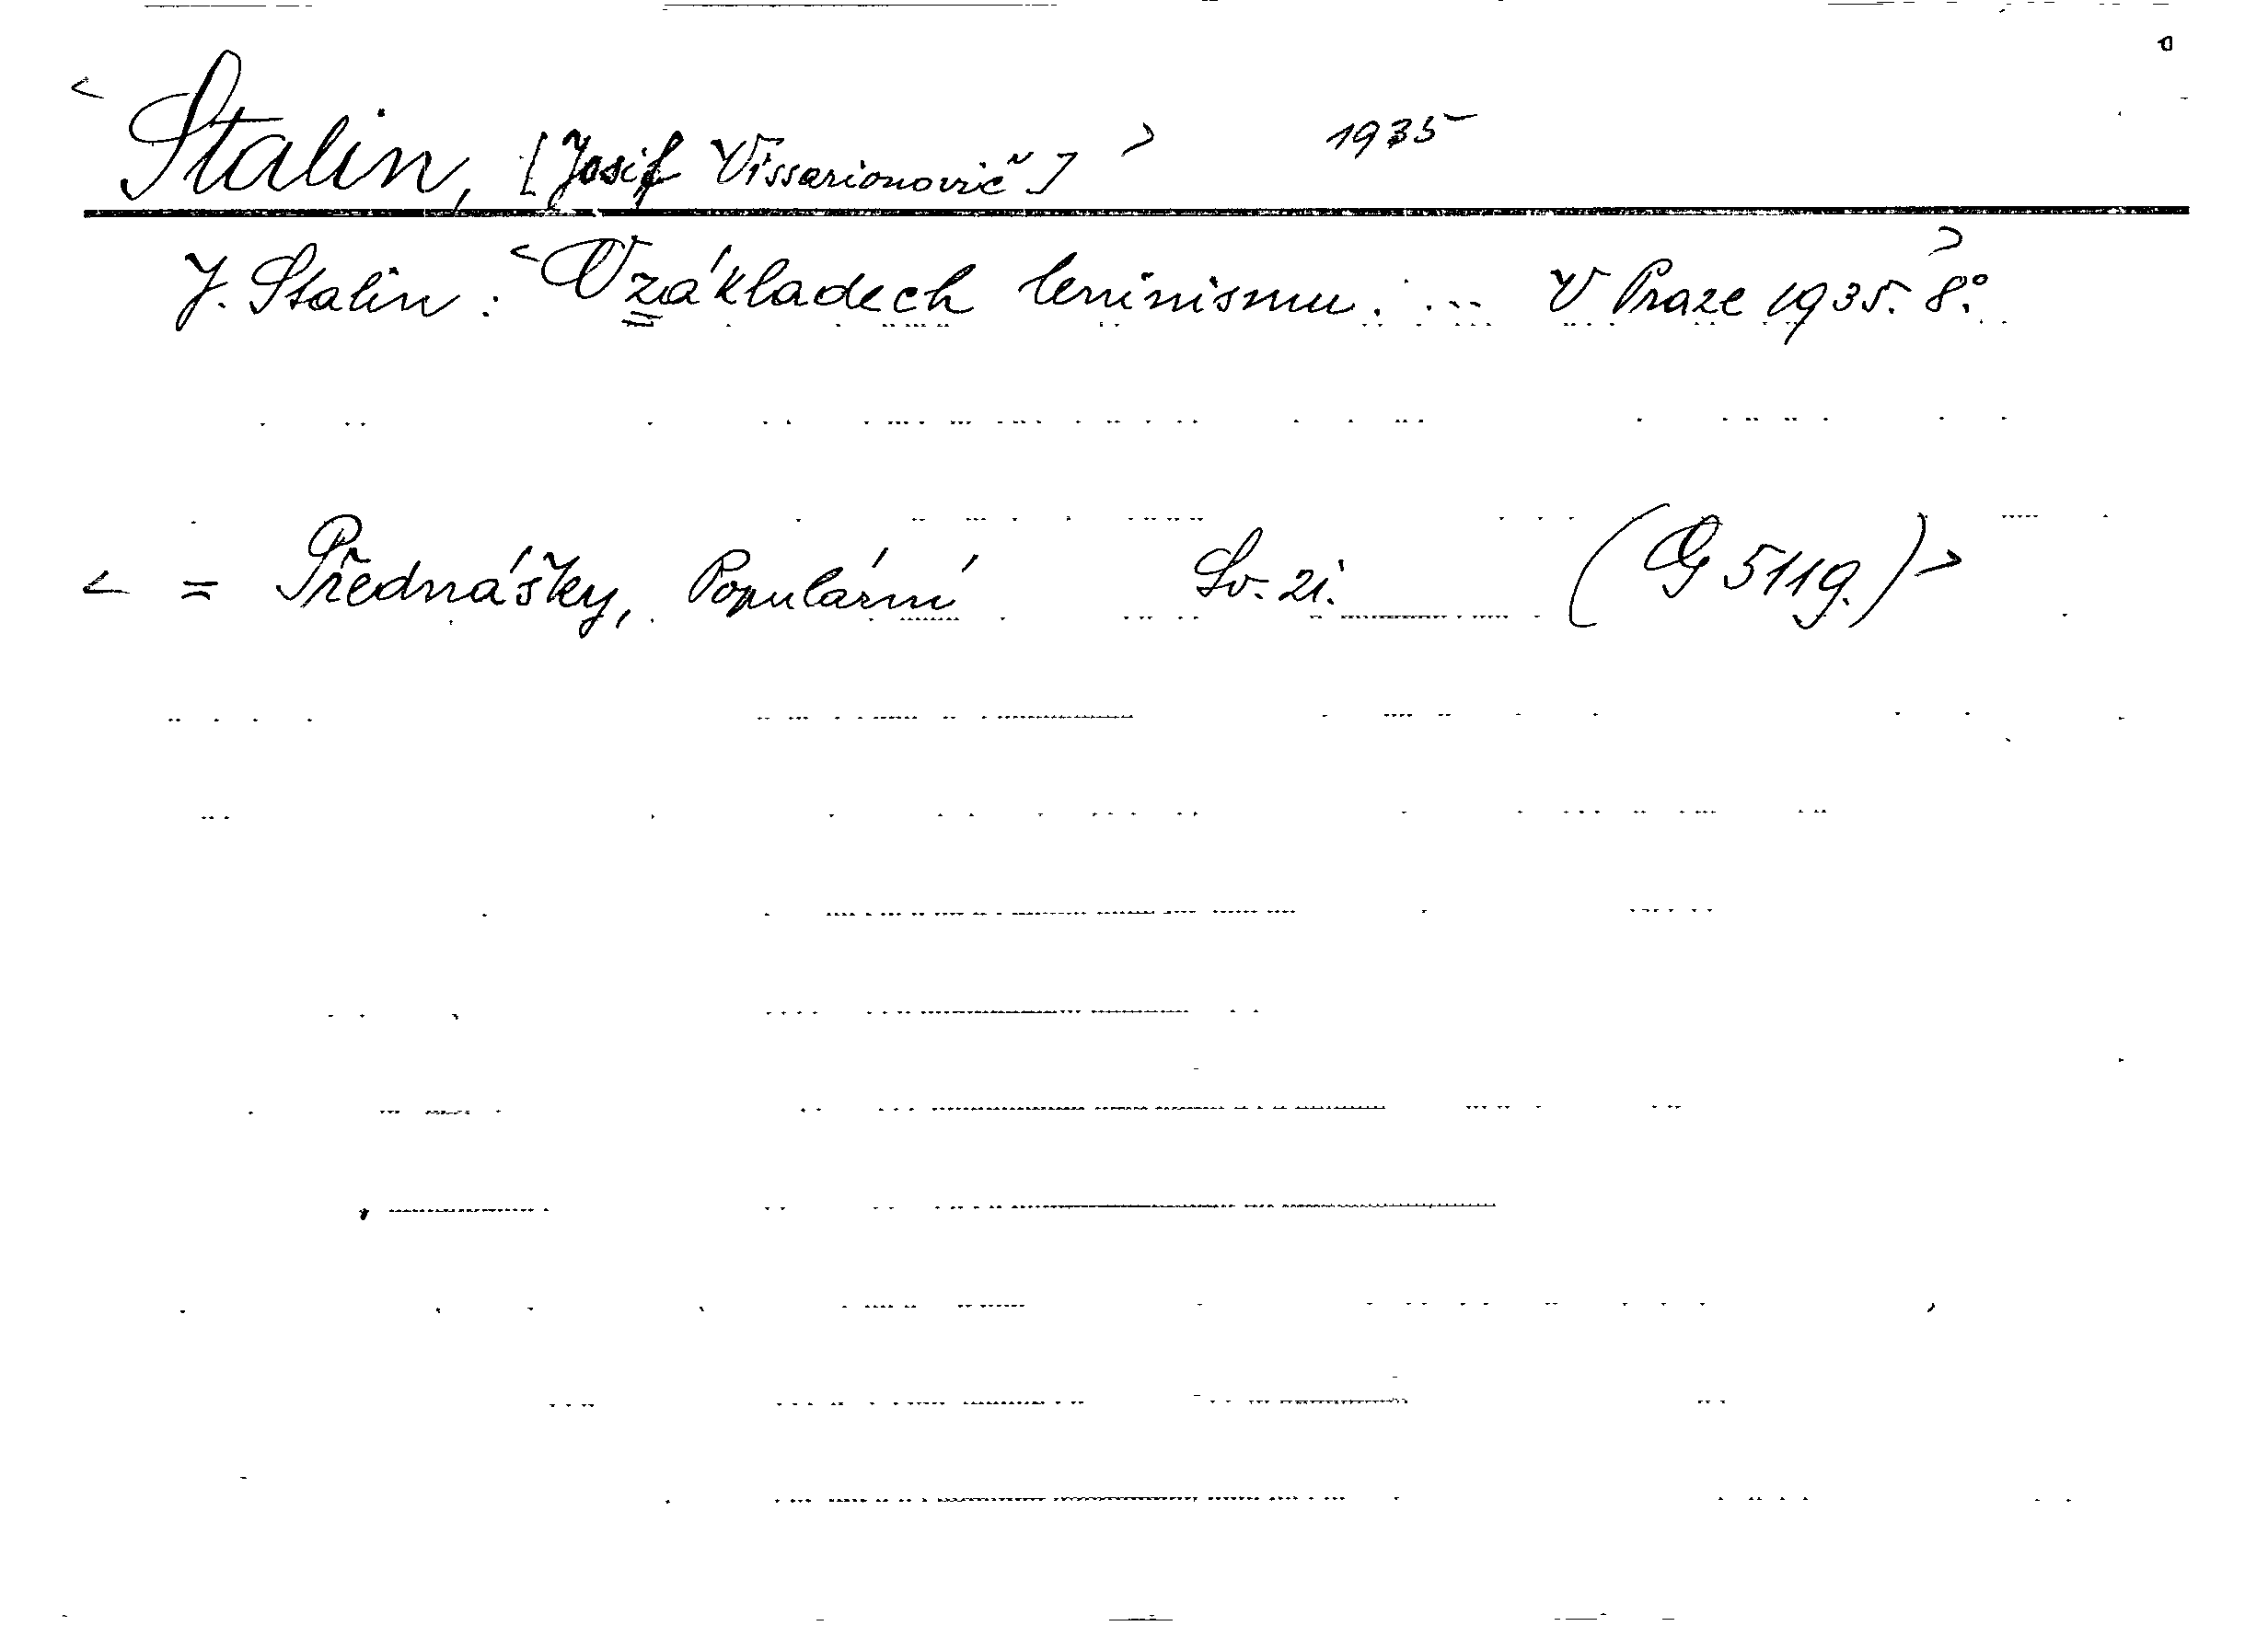 < Stalin, [Josif Vissarionovič] > 1935
J. Stalin: < O základech leninismu. ... V Praze 1935. 8°. >
< = Přednášky, Populární Sv. 21. (G 5119.) >